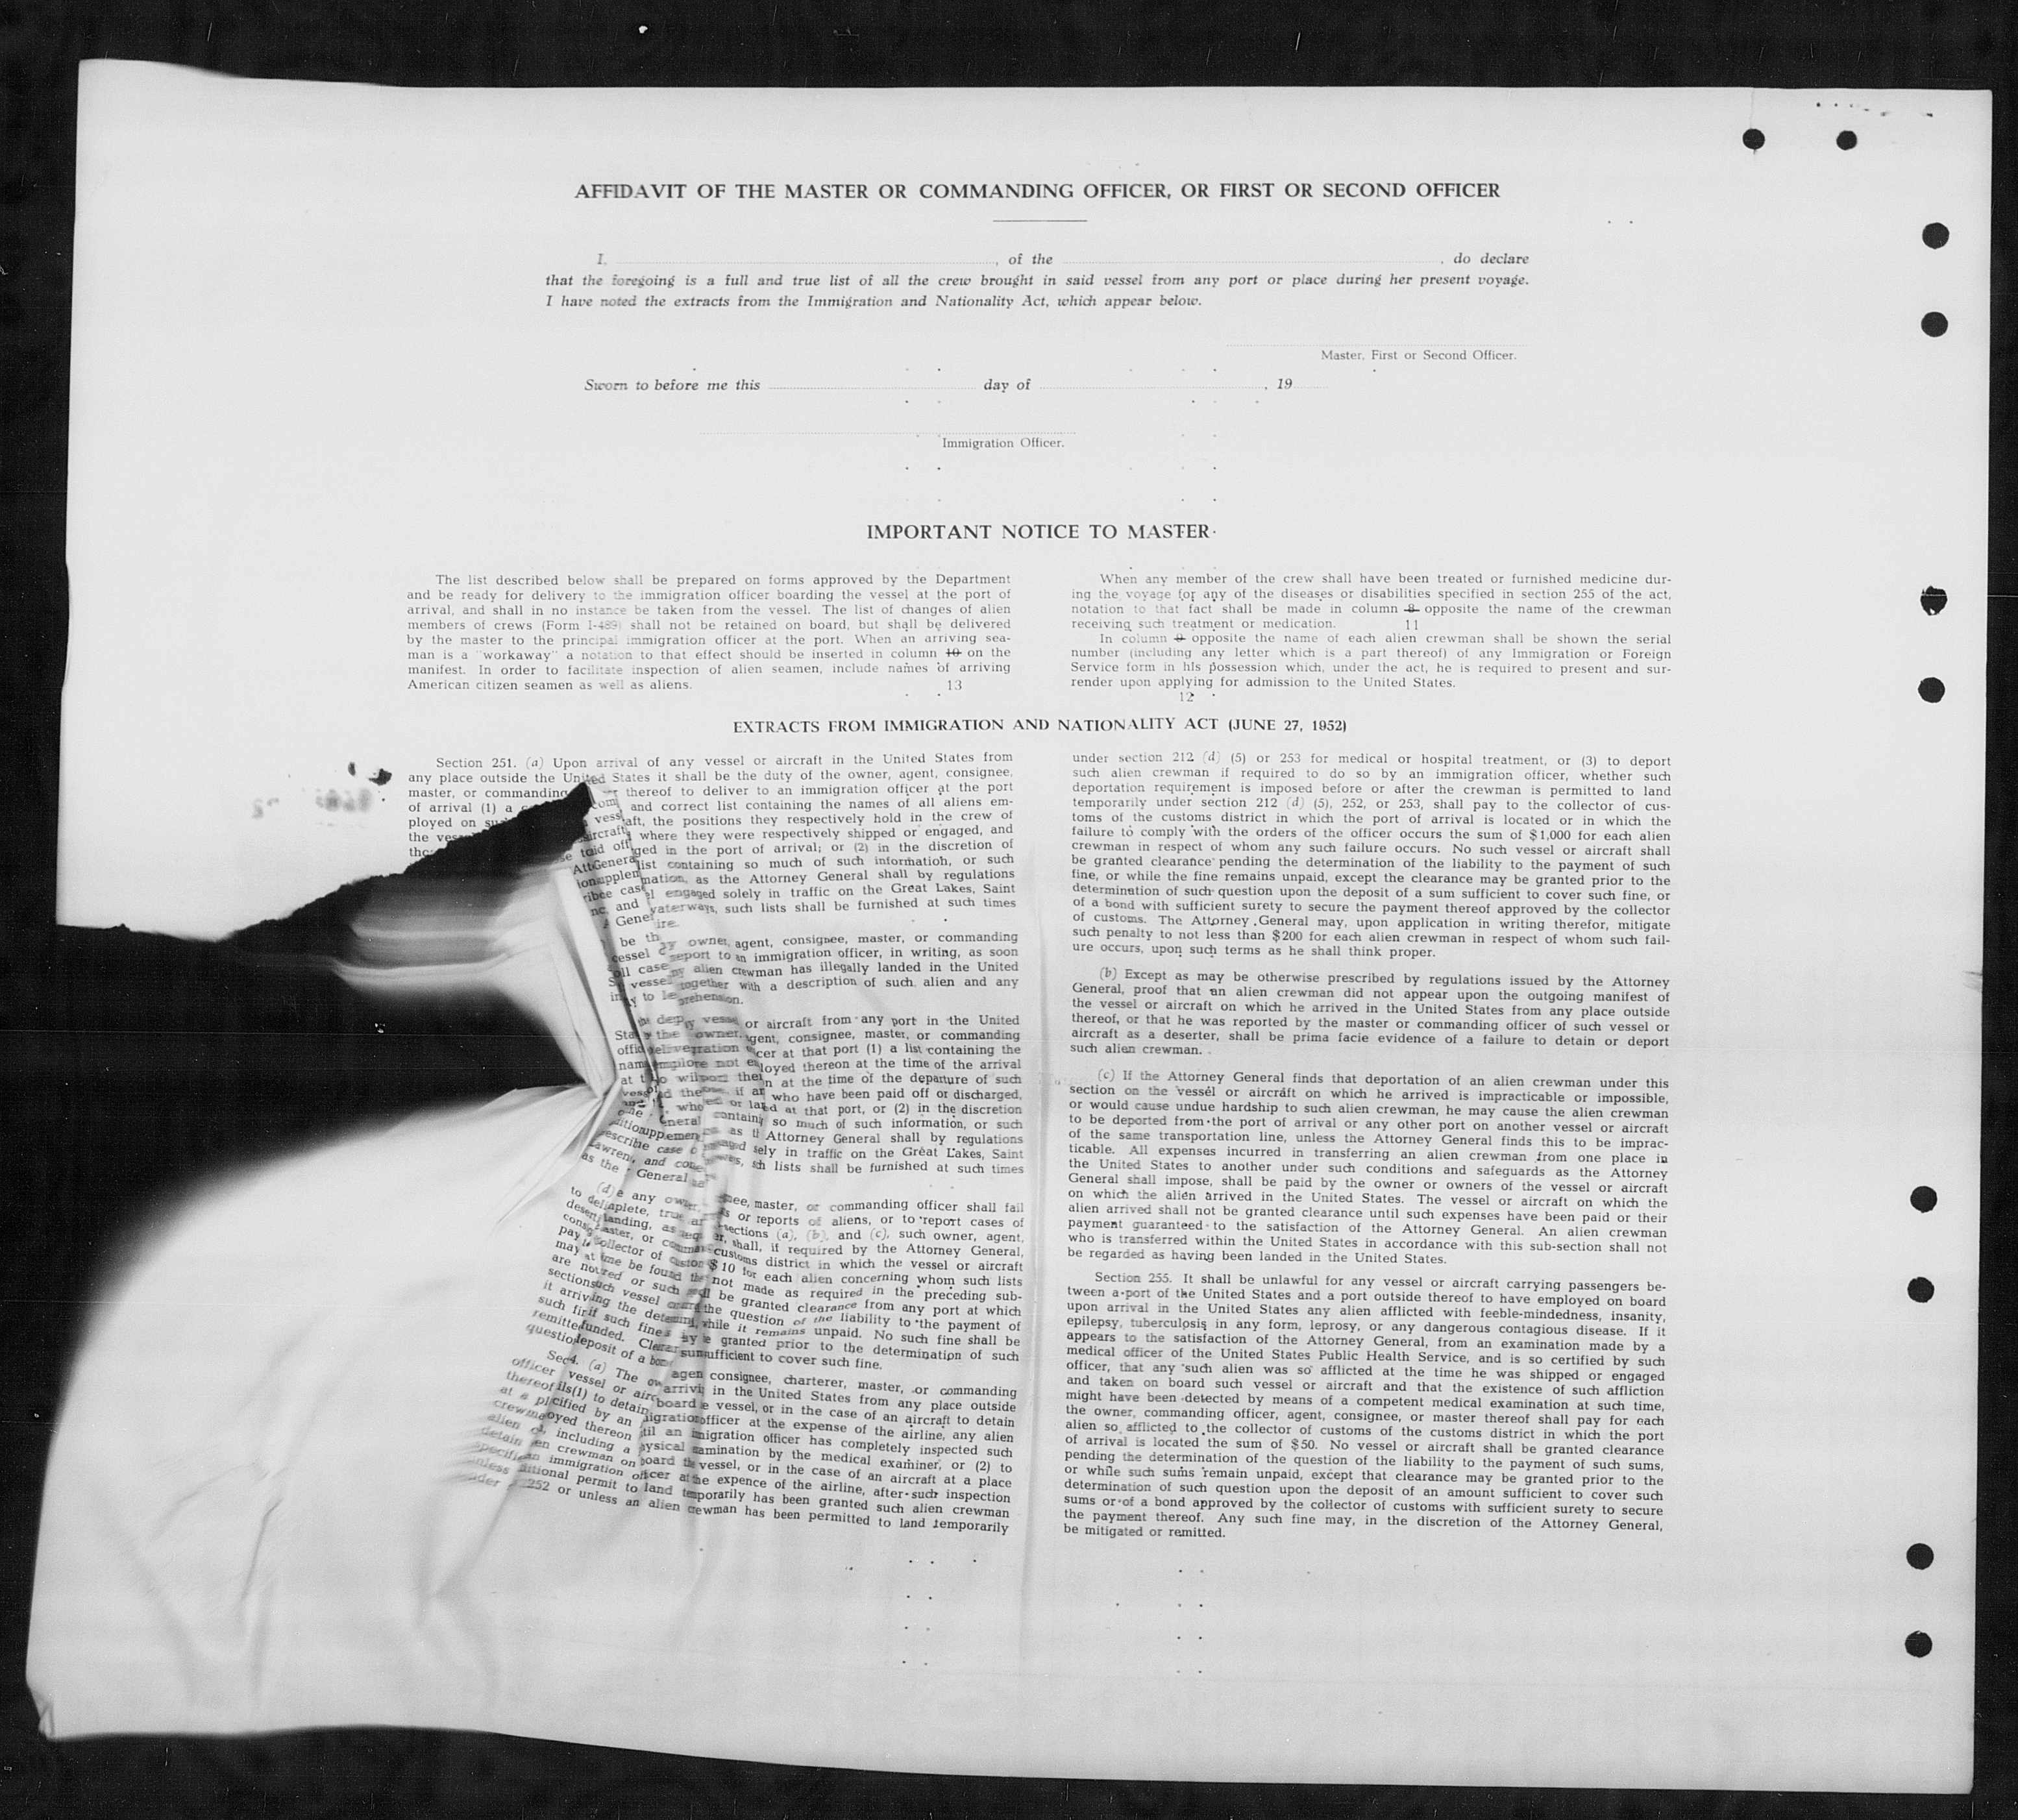 AFFIDAVIT OF THE MASTER OR COMMANDING OFFICER, OR FIRST OR SECOND OFFICER
I, , of the , do declare
that the foregoing is a full and true list of all the crew brought in said vessel from any port or place during her present voyage.
I have noted the extracts from the Immigration and Nationality Act, which appear below.
Master, First or Second Officer.
Sworn to before me this day of , 19
Immigration Officer.
IMPORTANT NOTICE TO MASTER
The list described below shall be prepared on forms approved by the Department
and be ready for delivery to the immigration officer boarding the vessel at the port of
arrival, and shall in no instance be taken from the vessel. The list of changes of alien
members of crews (Form I-489) shall not be retained on board, but shall be delivered
by the master to the principal immigration officer at the port. When an arriving sea-
man is a "workaway" a notation to that effect should be inserted in column 10 on the
manifest. In order to facilitate inspection of alien seamen, include names of arriving
American citizen seamen as well as aliens. 13
When any member of the crew shall have been treated or furnished medicine dur-
ing the voyage for any of the diseases or disabilities specified in section 255 of the act,
notation to that fact shall be made in column 8 opposite the name of the crewman
receiving such treatment or medication. 11
In column 9 opposite the name of each alien crewman shall be shown the serial
number (including any letter which is a part thereof) of any Immigration or Foreign
Service form in his possession which, under the act, he is required to present and sur-
render upon applying for admission to the United States.
12
EXTRACTS FROM IMMIGRATION AND NATIONALITY ACT (JUNE 27, 1952)
Section 251. (a) Upon arrival of any vessel or aircraft in the United States from
any place outside the United States it shall be the duty of the owner, agent, consignee,
master, or commanding thereof to deliver to an immigration officer at the port
of arrival (1) a and correct list containing the names of all aliens em-
ployed on the positions they respectively hold in the crew of
the where they were respectively shipped or engaged, and
in the port of arrival; or (2) in the discretion of
list containing so much of such information, or such
as the Attorney General shall by regulations
engaged solely in traffic on the Great Lakes, Saint
and such lists shall be furnished at such times
be owner, agent, consignee, master, or commanding
report to an immigration officer, in writing, as soon
case alien crewman has illegally landed in the United
together with a description of such alien and any
to
or aircraft from any port in the United
the owner, agent, consignee, master, or commanding
at that port (1) a list containing the
not thereon at the time of the arrival
at the time of the departure of such
if who have been paid off or discharged,
who or at that port, or (2) in the discretion
so much of such information, or such
as Attorney General shall by regulations
in traffic on the Great Lakes, Saint
and lists shall be furnished at such times
as the General
(d) any master, or commanding officer shall fail
to or reports of aliens, or to report cases of
(a), (b), and (c), such owner, agent,
master, or shall, if required by the Attorney General,
pay collector of customs district in which the vessel or aircraft
may at be found $10 for each alien concerning whom such lists
are or such not made as required in the preceding sub-
vessel be granted clearance from any port at which
it arriving the the question of the liability to the payment of
such such fine while it remains unpaid. No such fine shall be
granted prior to the determination of such
deposit of a sufficient to cover such fine.
(a) The consignee, charterer, master, or commanding
officer vessel or in the United States from any place outside
thereof (1) to detain board vessel, or in the case of an aircraft to detain
at a by an officer at the expense of the airline, any alien
thereon an officer has completely inspected such
alien including a examination by the medical examiner, or (2) to
detain crewman on board vessel, or in the case of an aircraft at a place
immigration officer at the expence of the airline, after such inspection
permit to land temporarily has been granted such alien crewman
252 or unless an alien crewman has been permitted to land temporarily
under section 212 (d) (5) or 253 for medical or hospital treatment, or (3) to deport
such alien crewman if required to do so by an immigration officer, whether such
deportation requirement is imposed before or after the crewman is permitted to land
temporarily under section 212 (d) (5), 252, or 253, shall pay to the collector of cus-
toms of the customs district in which the port of arrival is located or in which the
failure to comply with the orders of the officer occurs the sum of $1,000 for each alien
crewman in respect of whom any such failure occurs. No such vessel or aircraft shall
be granted clearance pending the determination of the liability to the payment of such
fine, or while the fine remains unpaid, except the clearance may be granted prior to the
determination of such question upon the deposit of a sum sufficient to cover such fine, or
of a bond with sufficient surety to secure the payment thereof approved by the collector
of customs. The Attorney General may, upon application in writing therefor, mitigate
such penalty to not less than $200 for each alien crewman in respect of whom such fail-
ure occurs, upon such terms as he shall think proper.
(b) Except as may be otherwise prescribed by regulations issued by the Attorney
General, proof that an alien crewman did not appear upon the outgoing manifest of
the vessel or aircraft on which he arrived in the United States from any place outside
thereof, or that he was reported by the master or commanding officer of such vessel or
aircraft as a deserter, shall be prima facie evidence of a failure to detain or deport
such alien crewman.
(c) If the Attorney General finds that deportation of an alien crewman under this
section on the vessel or aircraft on which he arrived is impracticable or impossible,
or would cause undue hardship to such alien crewman, he may cause the alien crewman
to be deported from the port of arrival or any other port on another vessel or aircraft
of the same transportation line, unless the Attorney General finds this to be imprac-
ticable. All expenses incurred in transferring an alien crewman from one place in
the United States to another under such conditions and safeguards as the Attorney
General shall impose, shall be paid by the owner or owners of the vessel or aircraft
on which the alien arrived in the United States. The vessel or aircraft on which the
alien arrived shall not be granted clearance until such expenses have been paid or their
payment guaranteed to the satisfaction of the Attorney General. An alien crewman
who is transferred within the United States in accordance with this sub-section shall not
be regarded as having been landed in the United States.
Section 255. It shall be unlawful for any vessel or aircraft carrying passengers be-
tween a port of the United States and a port outside thereof to have employed on board
upon arrival in the United States any alien afflicted with feeble-mindedness, insanity,
epilepsy, tuberculosis in any form, leprosy, or any dangerous contagious disease. If it
appears to the satisfaction of the Attorney General, from an examination made by a
medical officer of the United States Public Health Service, and is so certified by such
officer, that any such alien was so afflicted at the time he was shipped or engaged
and taken on board such vessel or aircraft and that the existence of such affliction
might have been detected by means of a competent medical examination at such time,
the owner, commanding officer, agent, consignee, or master thereof shall pay for each
alien so afflicted to the collector of customs of the customs district in which the port
of arrival is located the sum of $50. No vessel or aircraft shall be granted clearance
pending the determination of the question of the liability to the payment of such sums,
or while such sums remain unpaid, except that clearance may be granted prior to the
determination of such question upon the deposit of an amount sufficient to cover such
sums or of a bond approved by the collector of customs with sufficient surety to secure
the payment thereof. Any such fine may, in the discretion of the Attorney General,
be mitigated or remitted.